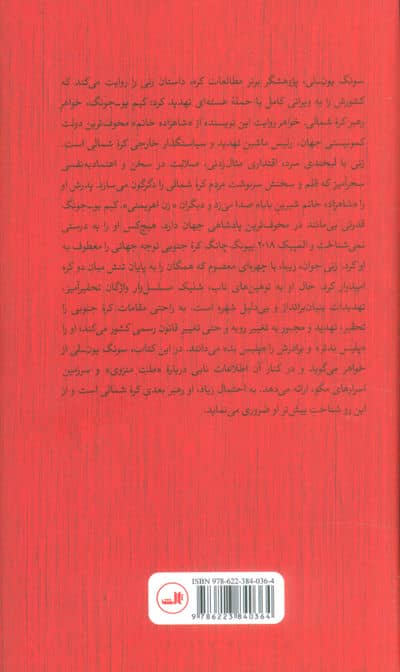 سونگ یون‌لی، پژوهشگر برتر مطالعات کره، داستان زنی را روایت می‌کند که
کشورش را به ویرانی کامل با حملهٔ هسته‌ای تهدید کرد: کیم یو-جونگ، خواهر
رهبر کرهٔ شمالی. خواهر روایت این نویسنده از «شاهزاده خانم» مخوف‌ترین دولت
کمونیستی جهان، رئیس ماشین تهدید و سیاستگذار خارجی کرهٔ شمالی است.
زنی با لبخندی سرد، اقتداری مثال‌زدنی، صلابت در سخن و اعتمادبه‌نفسی
سحرآمیز که قلم و سخنش سرنوشت مردم کرهٔ شمالی را دگرگون می‌سازد. پدرش او
را «شاهزاده خانم شیرین بابا» صدا می‌زد و دیگران «زن اهریمنی». کیم یو-جونگ
قدرتی بی‌مانند در مخوف‌ترین پادشاهی جهان دارد. هیچ‌کس او را به درستی
نمی‌شناخت و المپیک ۲۰۱۸ پیونگ چانگ کرهٔ جنوبی توجه جهانی را معطوف به
او کرد. زنی جوان، زیبا، با چهره‌ای معصوم که همگان را به پایان تنش میان دو کره
امیدوار کرد. حال او به توهین‌های ناب، شلیک مسلسل‌وار واژگان تحقیرآمیز،
تهدیدات بنیان‌برانداز و بی‌دلیل شهره است. به راحتی مقامات کرهٔ جنوبی را
تحقیر، تهدید و مجبور به تغییر رویه و حتی تغییر قانون رسمی کشور می‌کند؛ او را
«پلیس بدتر» و برادرش را «پلیس بد» می‌دانند. در این کتاب، سونگ یون‌لی از
خواهر می‌گوید و در کنار آن اطلاعات نابی دربارهٔ «ملت منزوی» و سرزمین
اسرارهای مگو، ارائه می‌دهد. به احتمال زیاد، او رهبر بعدی کرهٔ شمالی است و از
این رو شناخت بیش‌تر او ضروری می‌نماید.
ISBN 978-622-384-036-4
ثالث
9 786223 840364